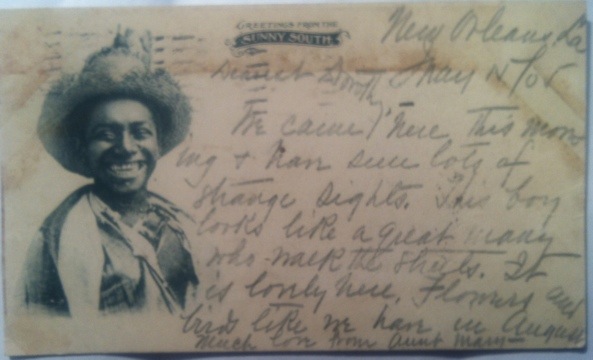 GREETINGS FROM THE
SUNNY SOUTH
New Orleans, La
May 15/05
Dearest Dorothy,
We came here this morn
ing & have seen lots of
strange sights. This boy
looks like a great many
who walk the streets. It
is lovely here. Flowers and
birds like we have in August
Much love from Aunt Mary